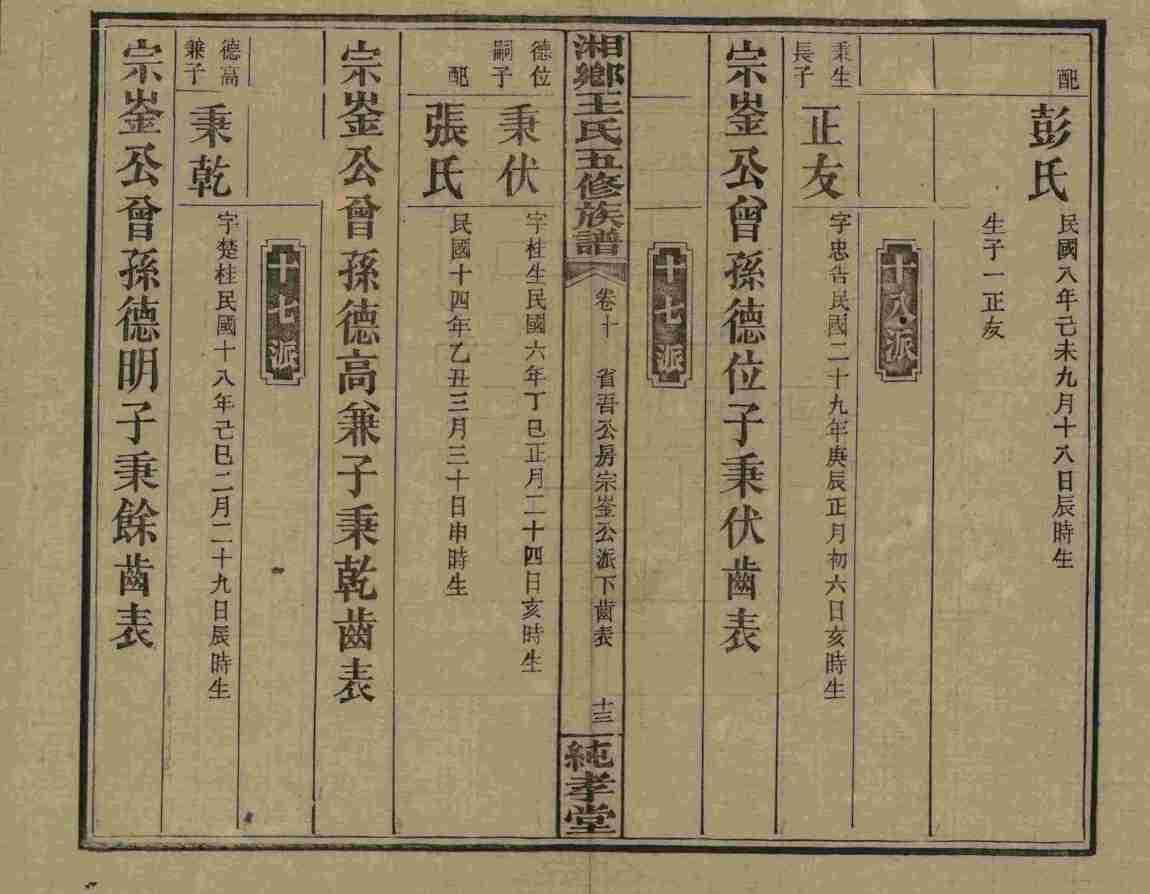 配
彭氏
民國八年己未九月十八日辰時生
生子一正友
十八派
秉生
長子
正友
字忠告民國二十九年庚辰正月初六日亥時生
宗崟公曾孫德位子秉伏齒表
十七派
湘鄉王氏五修族譜
卷十
省吾公房宗崟公派下齒表
十三
純孝堂
德位
嗣子
秉伏
字桂生民國六年丁巳正月二十四日亥時生
配
張氏
民國十四年乙丑三月三十日申時生
宗崟公曾孫德高兼子秉乾齒表
十七派
德高
兼子
秉乾
字楚桂民國十八年己巳二月二十九日辰時生
宗崟公曾孫德明子秉餘齒表